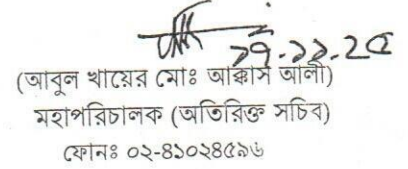 ২৭-১১-২৫
(আবুল খায়ের মোঃ আক্কাস আলী)
মহাপরিচালক (অতিরিক্ত সচিব)
ফোনঃ ০২-৪১০২৪৫১৬